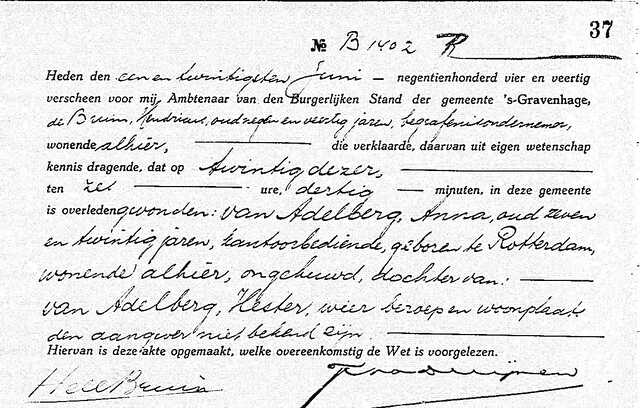 37
№ B 1402 R
Heden den een en twintigsten Juni — negentienhonderd vier en veertig
verscheen voor mij Ambtenaar van den Burgerlijken Stand der gemeente 's-Gravenhage,
de Bruin, Hendricus, oud negen en veertig jaren, begrafenisondernemer,
wonende alhier, — die verklaarde, daarvan uit eigen wetenschap
kennis dragende, dat op twintig dezer, —
ten zes — ure, dertig — minuten, in deze gemeente
is overleden gevonden: van Adelberg, Anna, oud zeven
en twintig jaren, kantoorbediende, geboren te Rotterdam,
wonende alhier, ongehuwd, dochter van: —
van Adelberg, Hester, wier beroep en woonplaats
den aangever niet bekend zijn. —
Hiervan is deze akte opgemaakt, welke overeenkomstig de Wet is voorgelezen.
H de Bruin